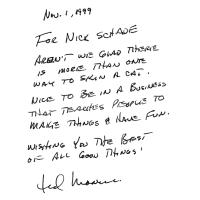 Nov. 1, 1999
FOR NICK SCHADE
AREN'T WE GLAD THERE
IS MORE THAN ONE
WAY TO SKIN A CAT.
NICE TO BE IN A BUSINESS
THAT TEACHES PEOPLE TO
MAKE THINGS & HAVE FUN.
WISHING YOU THE BEST
OF ALL GOOD THINGS!
Ted